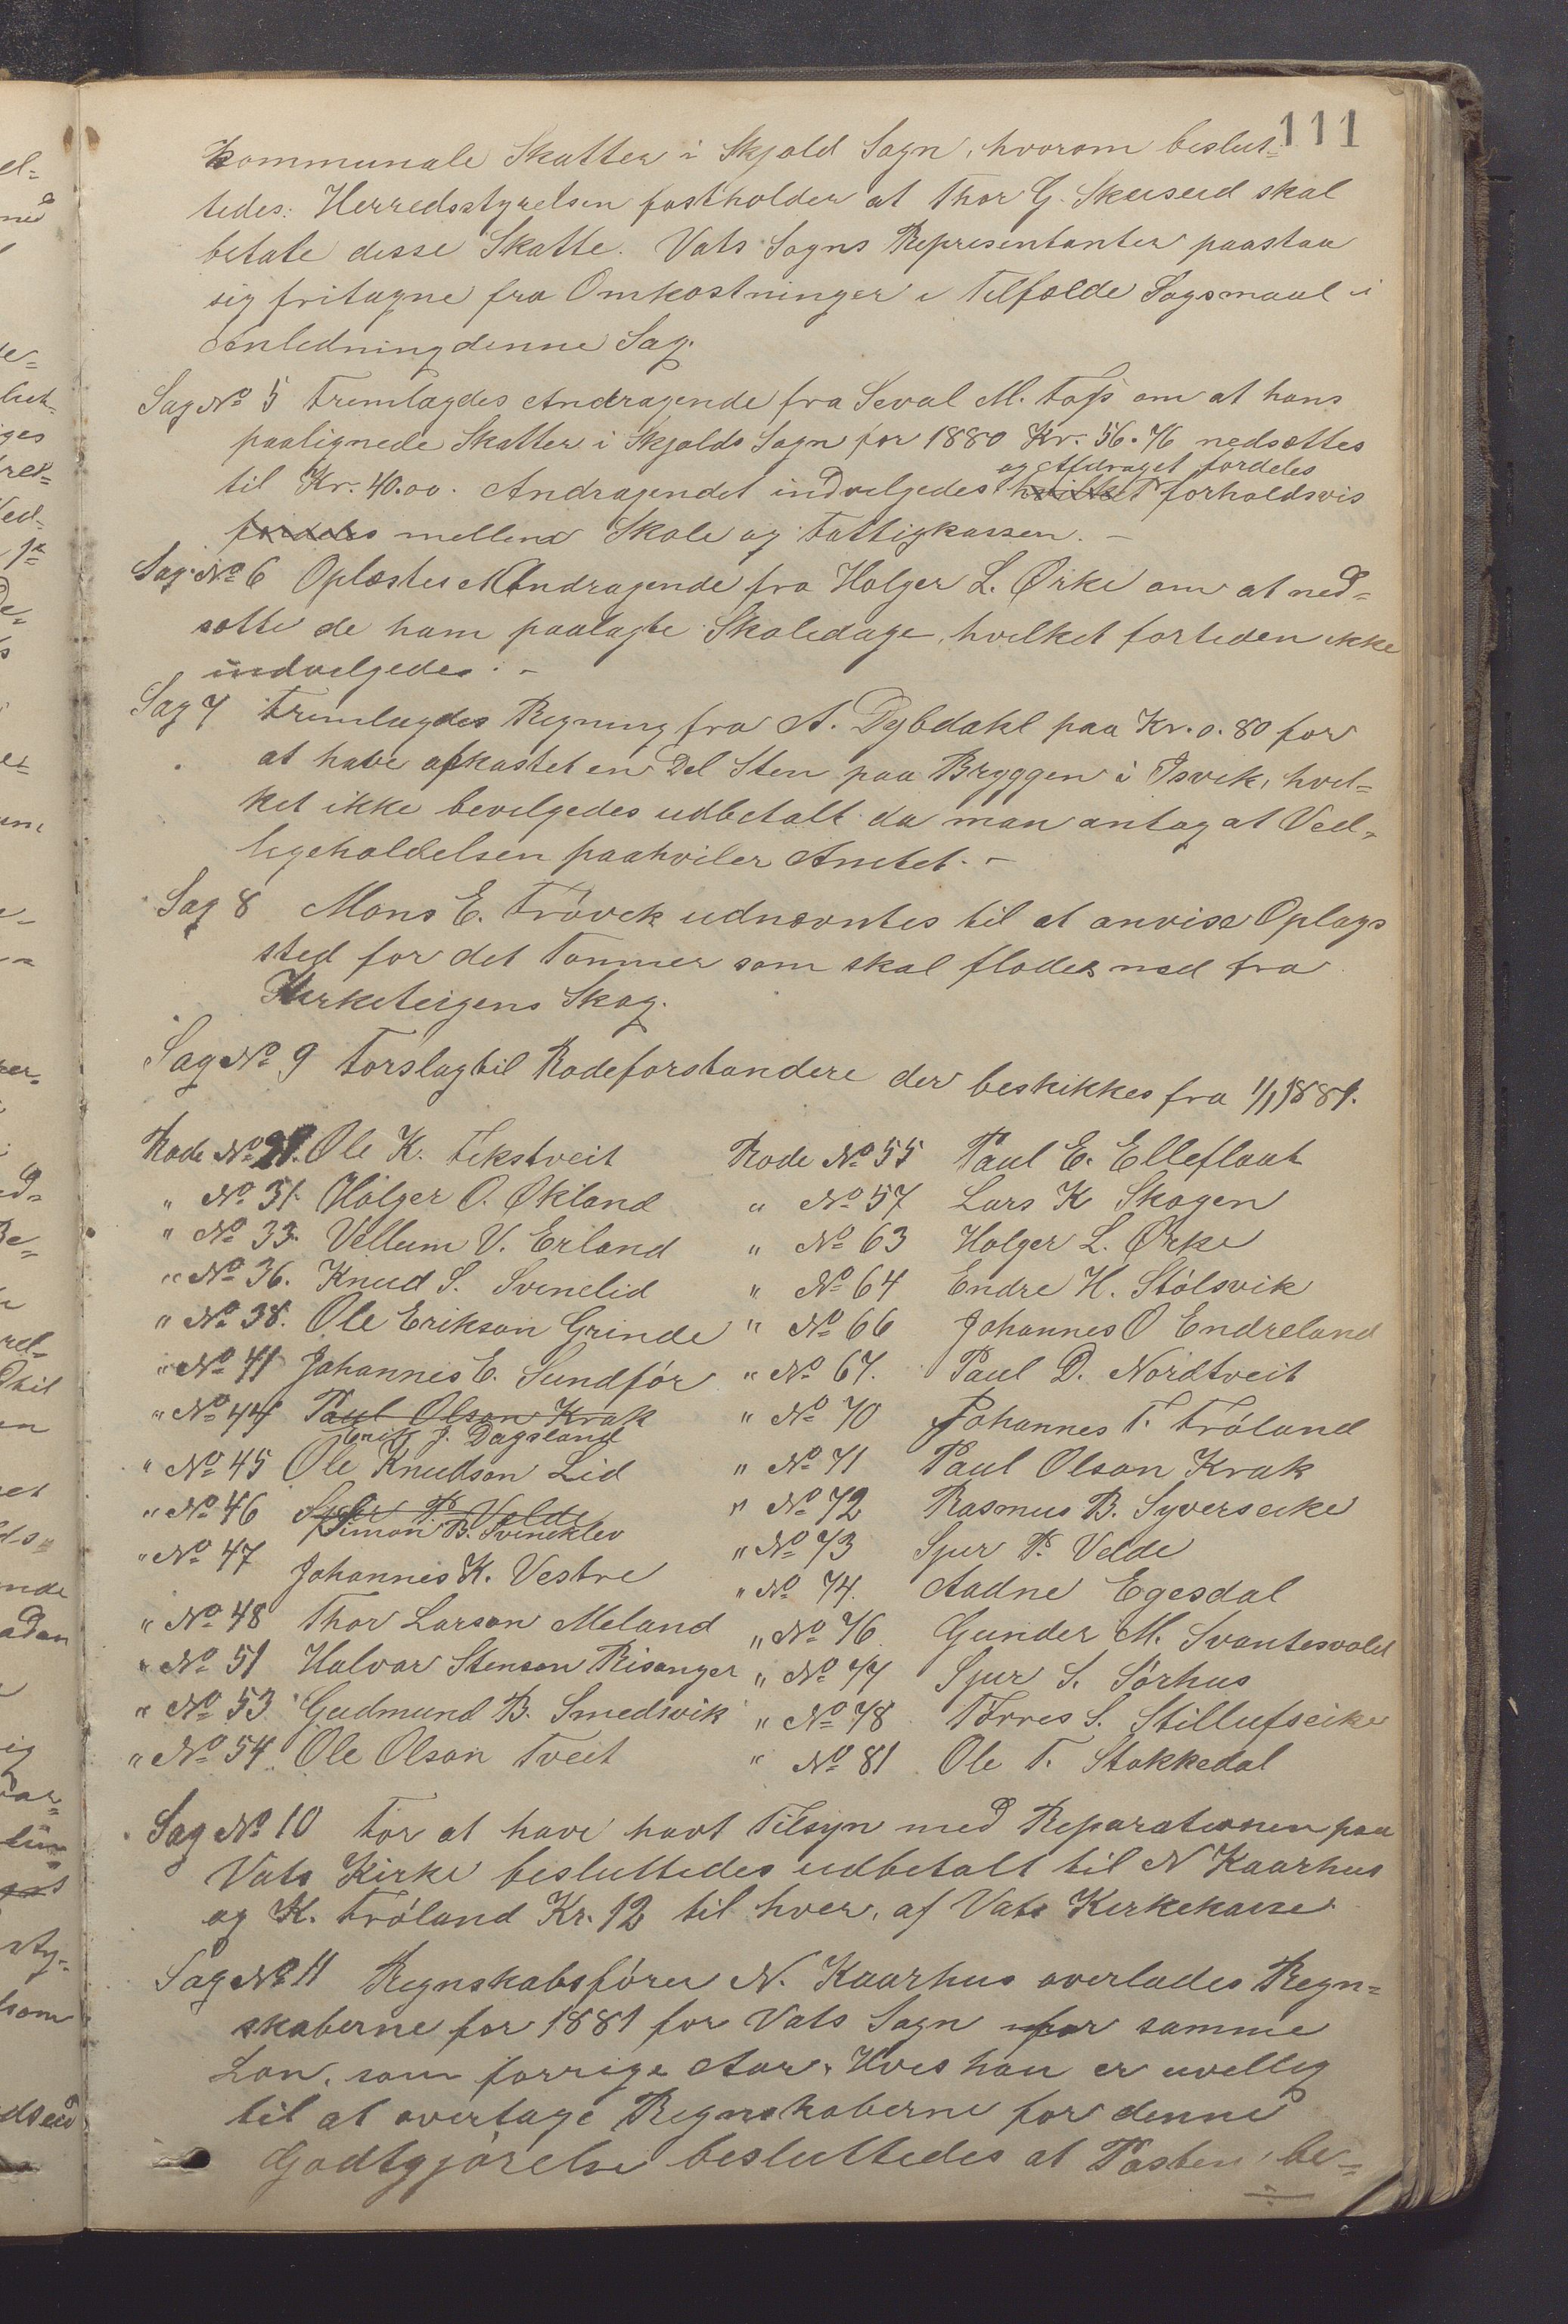 111
kommunale Skatter i Skjold Sogn, hvorom beslut=
tedes: Herredsstyrelsen fastholder at Thor G. Skeiseid skal
betale disse Skatte. Vats Sogns Representanter paastaa
sig fritagne fra Omkostninger i Tilfælde Sagsmaal i
Anledning denne Sag.
Sag No 5 Fremlagdes Andragende fra Seval M. Tofs om at hans
paalignede Skatter i Skjolds Sogn for 1880 Kr. 56.76 nedsættes
og Afdraget fordeles
til Kr. 40.00. Andragendet indvilgedes hvilket forholdsvis
fordeles mellem Skole og Fattigkassen. –
Sag No 6 Oplæstes Andragende fra Holger L. Ørke om at ned=
sætte de ham paalagte Skoledage, hvilket fortiden ikke
indvilgedes. –
Sag 7 Fremlagdes Regning fra A. Dybdahl paa Kr. 0.80 for
at have afkastet en Del Sten paa Bryggen i Isvik, hvil=
ket ikke bevilgedes udbetalt da man antog at Ved=
ligeholdelsen paahviler Amtet. –
Sag 8 Mons E. Frövik udnævntes til at anvise Oplags
sted for det Tømmer som skal flødes ned fra
Kirketeigens Skog.
Sag No 9 Forslag til Rodeforstandere der beskikkes fra 1/1 1881.
Rode No 29. Ole K. Fikstveit
" No 31. Holger O. Økland
" No 33. Vellum V. Erland
" No 36. Knud S. Svinelid
" No 38. Ole Erikson Grinde
" No 41 Johannes E. Sundför
" No 44 Paul Olson Krak
Erik J. Dagsland
" No 45 Ole Knudson Lid
" No 46 Sjur P. Velde
Simon B. Svineklev
" No 47 Johannes K. Vestre
" No 48 Thor Larson Meland
" No 51 Halvor Stenson Risanger
" No 53 Gudmund B. Smedsvik
" No 54 Ole Olson Tveit
Rode No 55 Paul E. Elleflaat
" No 57 Lars K Skogen
" No 63 Holger L. Ørke
" No 64 Endre H. Stölsvik
" No 66 Johannes O Endreland
" No 67. Paul D. Nordtveit
" No 70 Johannes T. Fröland
" No 71 Paul Olson Krak
" No 72 Rasmus B. Syverseike
" No 73 Sjur P. Velde
" No 74. Aadne Egesdal
" No 76 Gunder M. Svantesvold
" No 77 Sjur S. Sörhus
" No 78 Törres S. Stillufseike
" No 81 Ole T. Stokkedal
Sag No 10 For at have havt Tilsyn med Reparationen paa
Vats Kirke besluttedes udbetalt til N Kaarhus
og K. Fröland Kr. 12 til hver, af Vats Kirkekasse.
Sag No 11 Regnskabsfører N. Kaarhus overlades Regn=
skaberne for 1881 for Vats Sogn for samme
Løn, som forrige Aar. Hvis han er uvillig
til at overtage Regnskaberne for denne
Godtgjörelse besluttedes at Posten be=